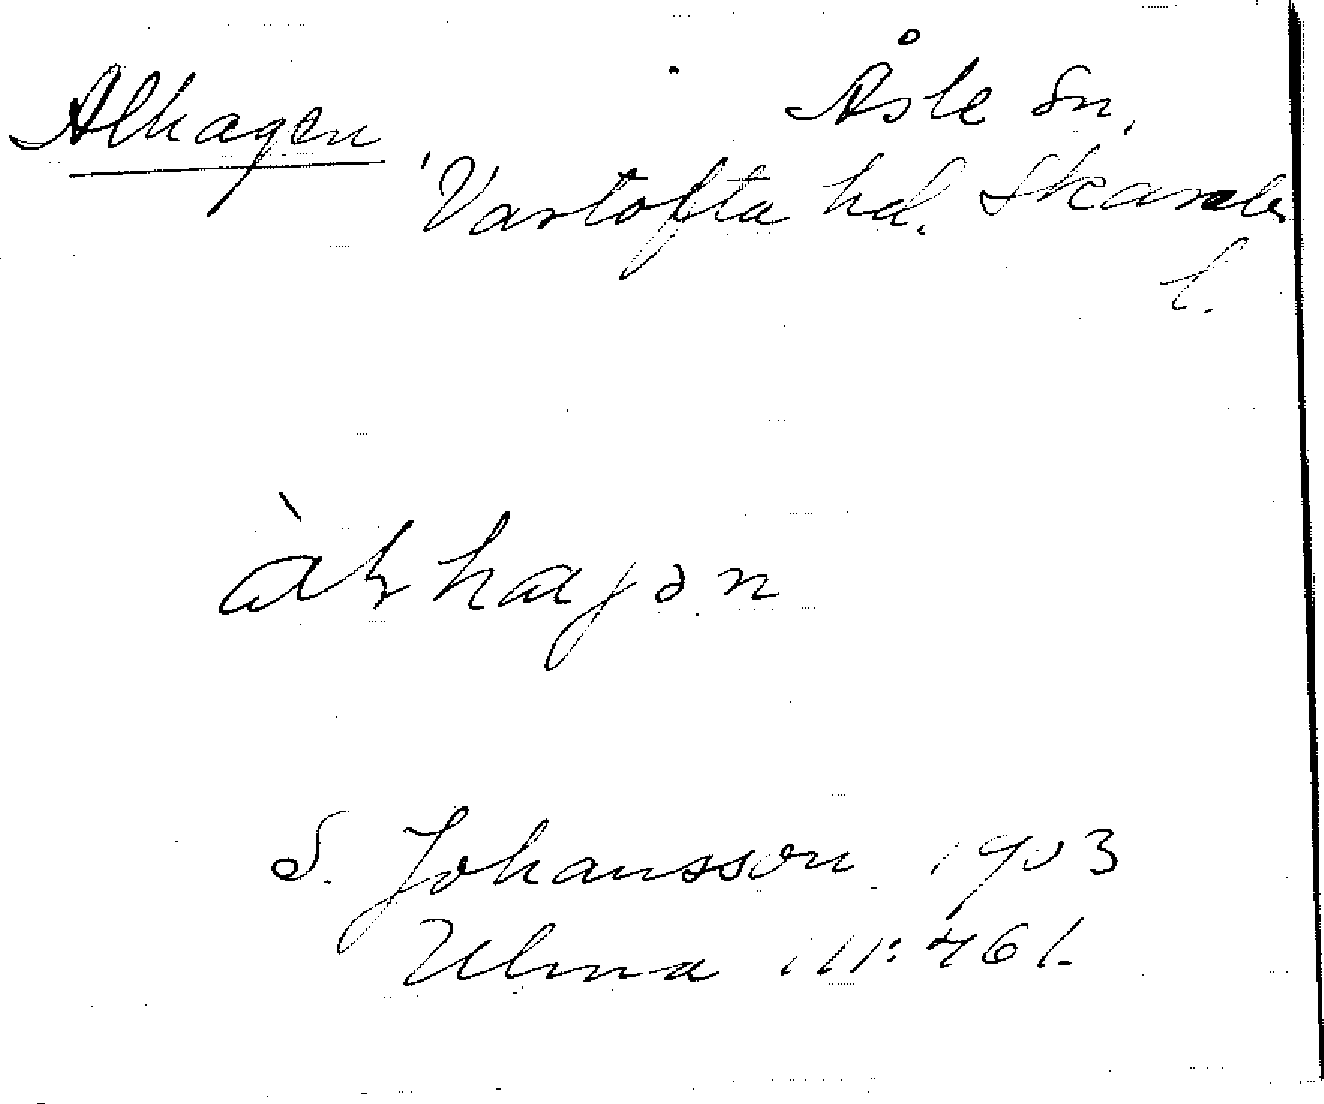 Alhagen Åsle Sn,
Vartofta hd. Skarabs
l.
S. Johansson 1903
Ulma 111:461.